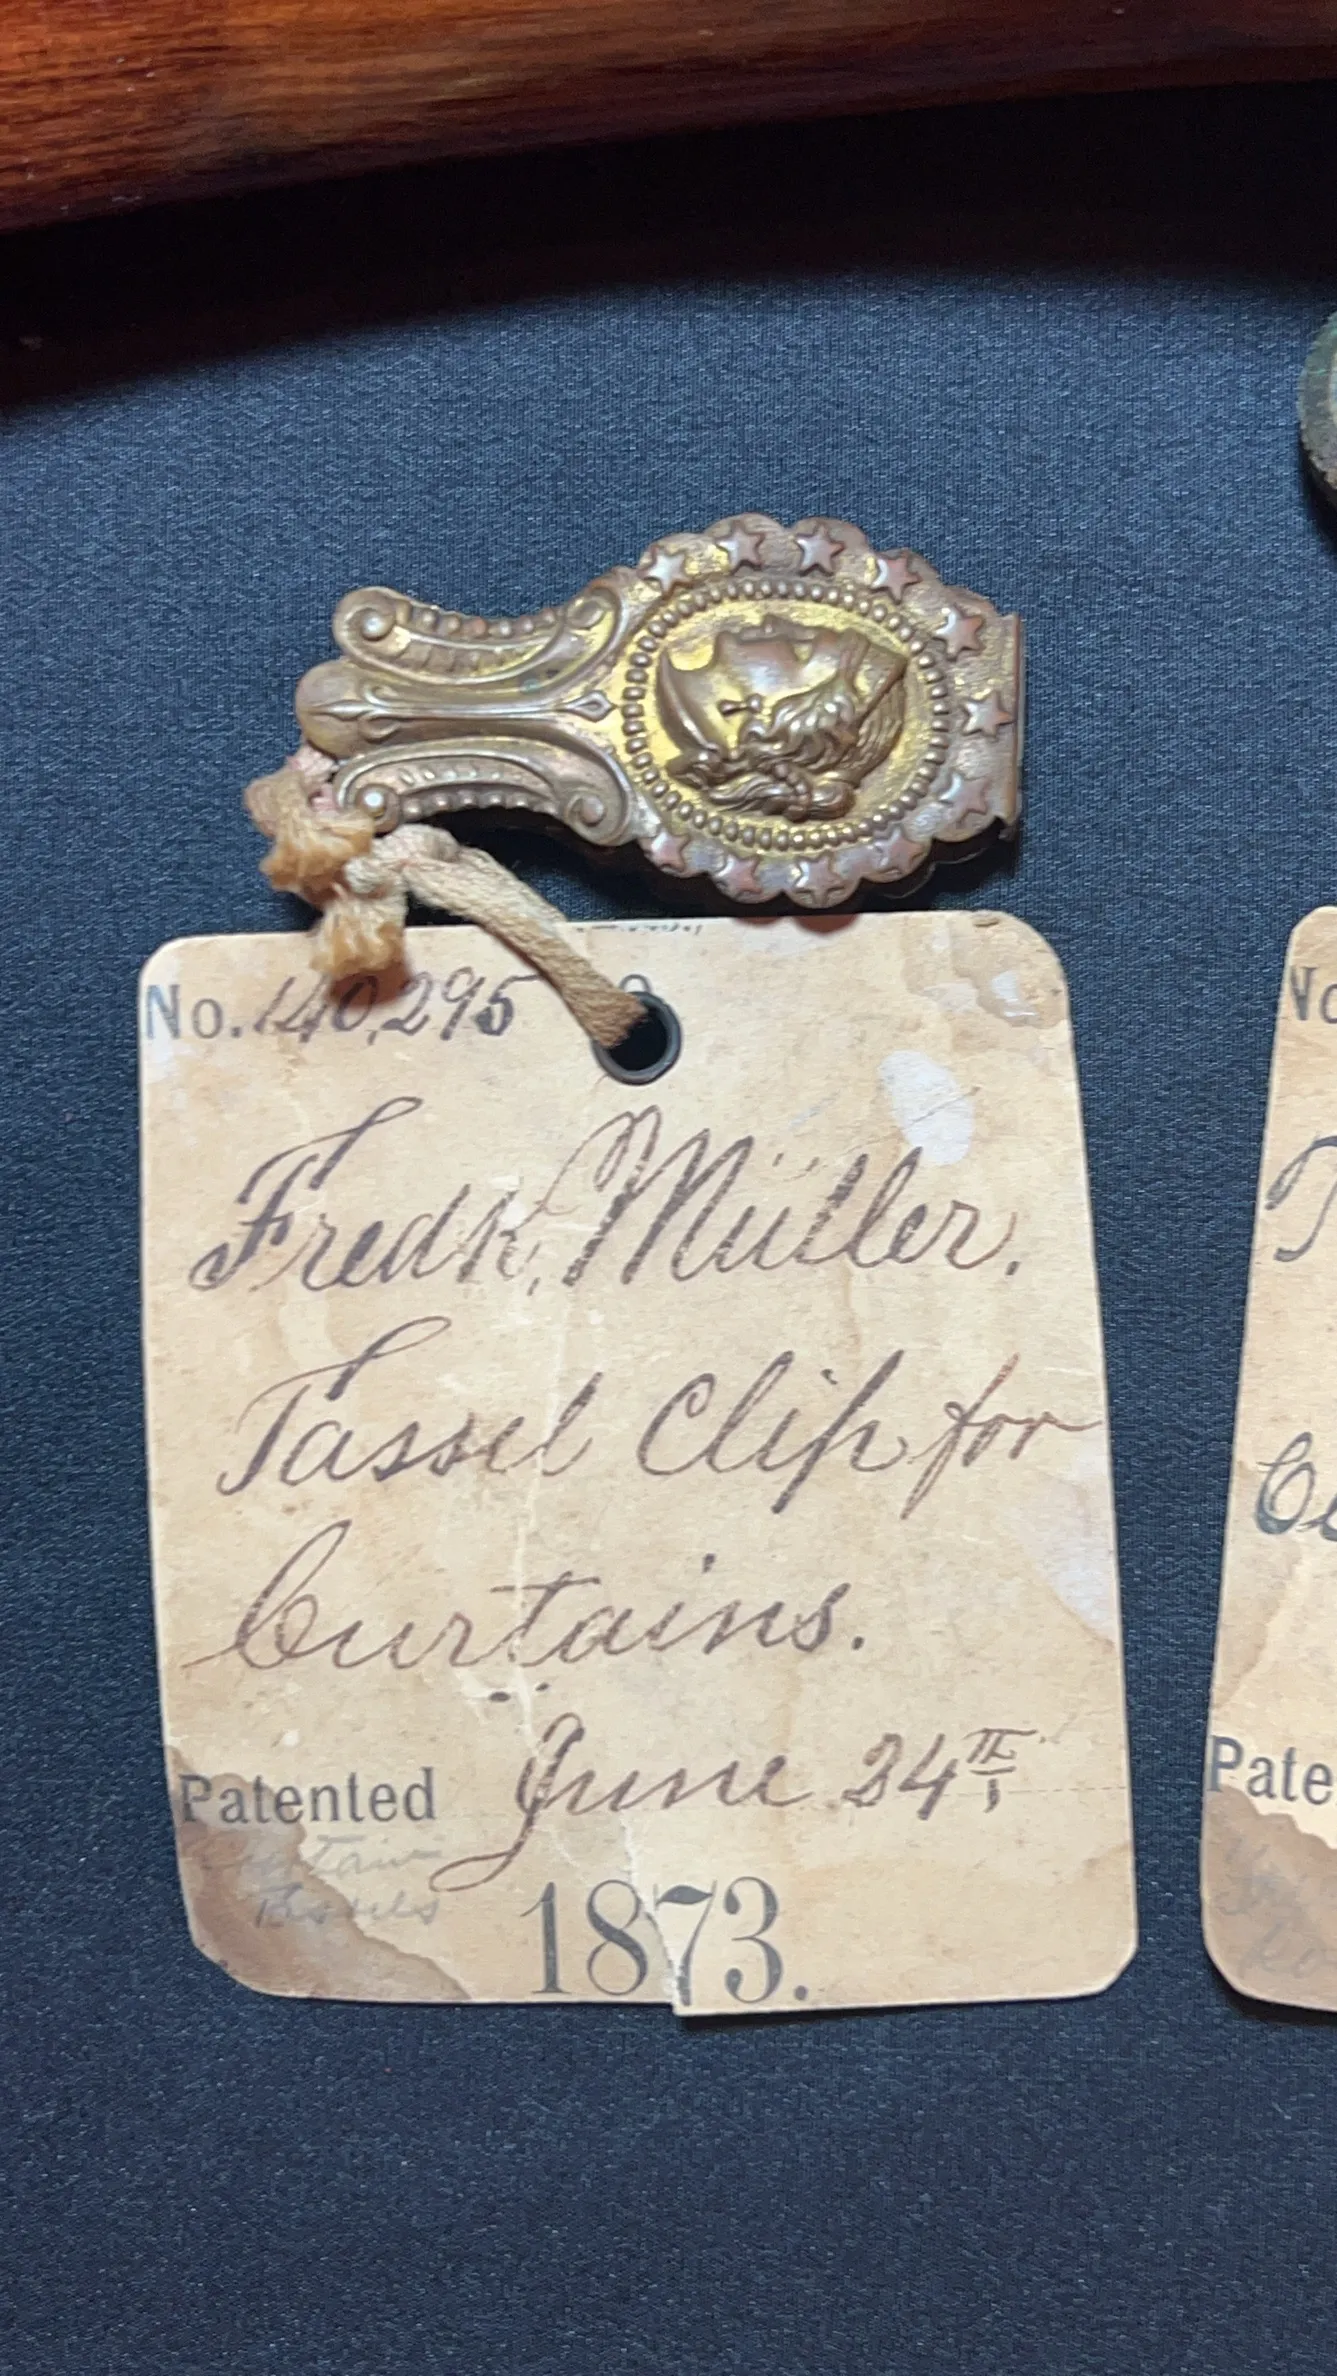 No. 140,295
Fredk, Müller.
Tassel Clip for
Curtains.
Patented June 24th
Curtain
Tassels
1873.
No
Pate